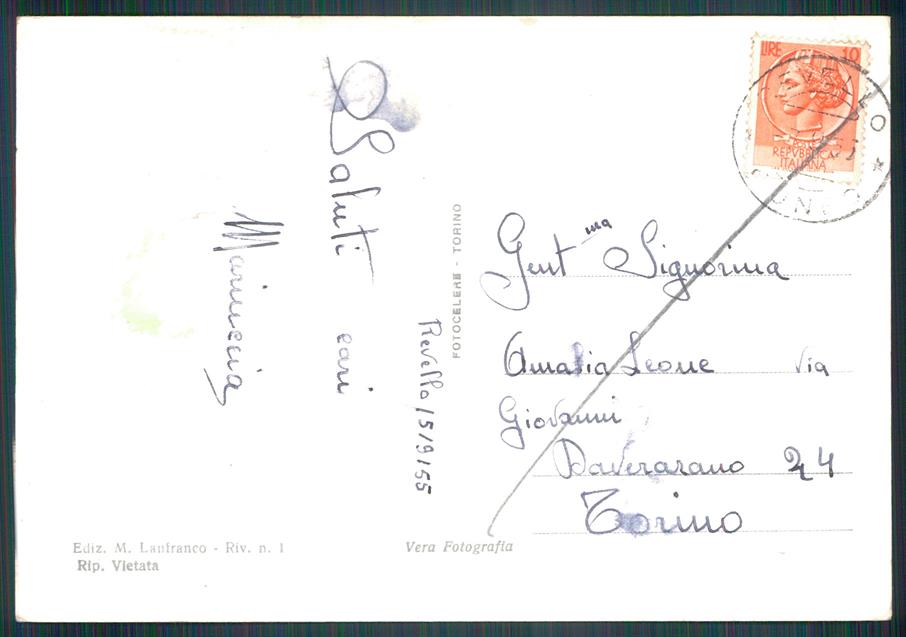 Saluti cari
Marinccia
Revello 15/9/55
FOTOCELERE - TORINO
Gent ma Signorina
Amalia Leone Via
Giovanni
Daverarano 24
Torino
LIRE 10
POSTE
REPVBBLICA
ITALIANA
CUNEO
Ediz. M. Lanfranco - Riv. n. 1
Rip. Vietata
Vera Fotografia